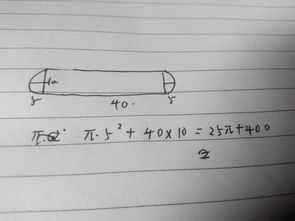 10
5 40. 5
π·5² + 40×10 = 25π+400
2